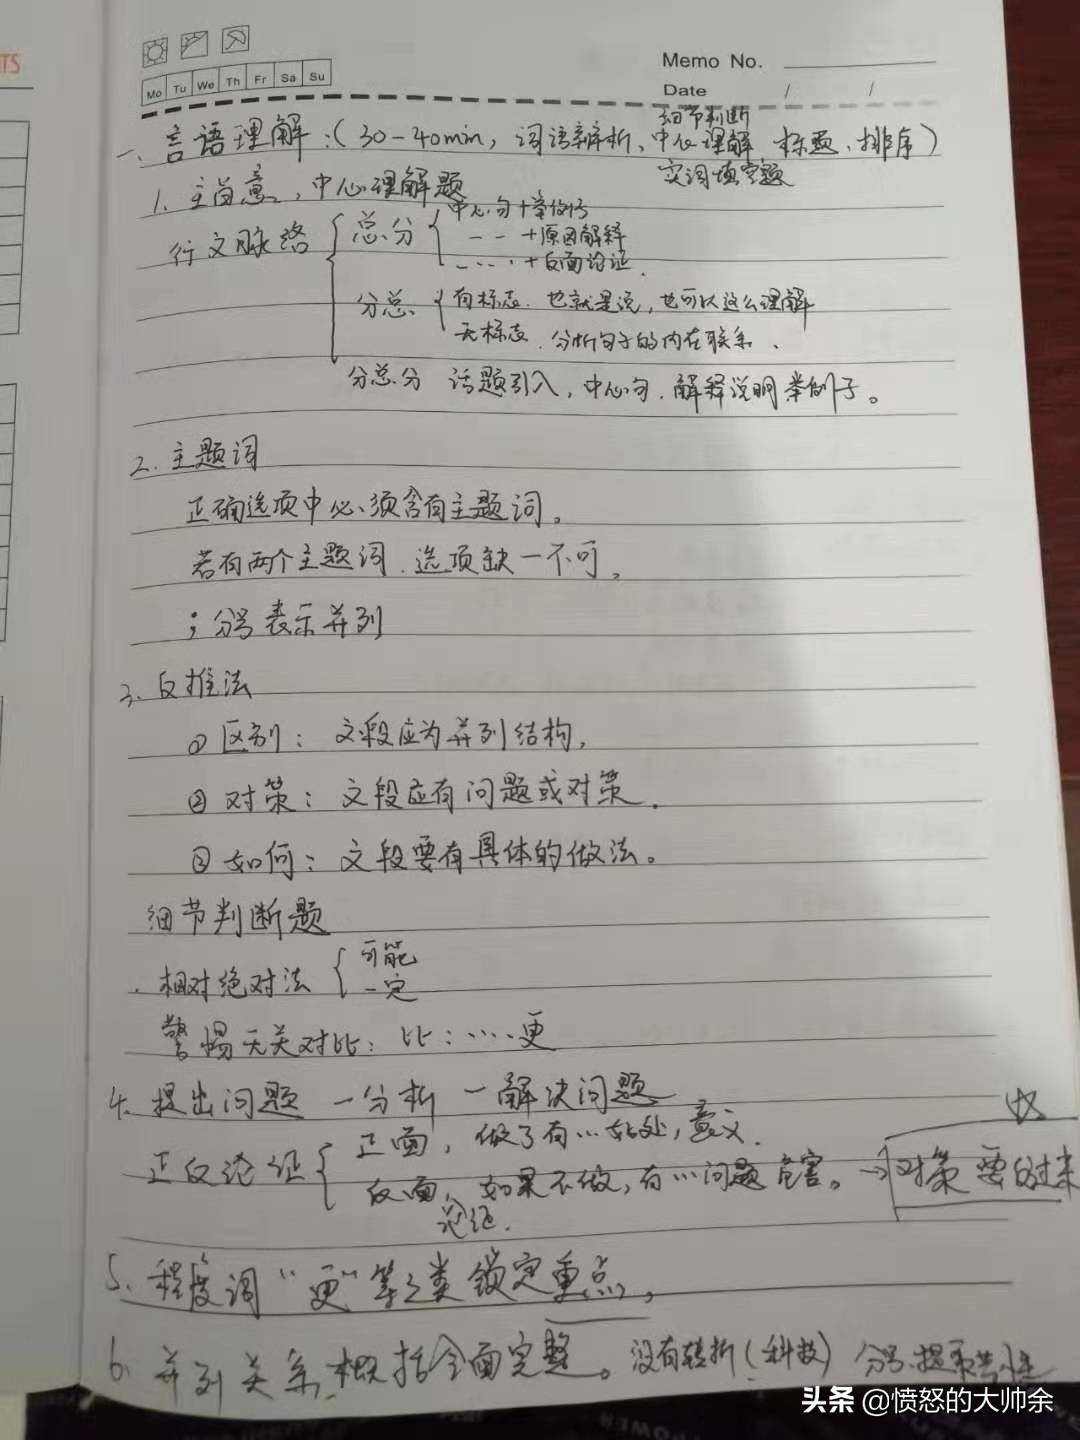 TS
Mo Tu We Th Fr Sa Su
Memo No.
Date / /
细节判断
一、言语理解:(30-40min, 词语辨析、中心理解 标题、排序)
实词填空题
1. 主旨意, 中心理解题
行文脉络
总分
中心句+举例
--+原因解释
-...+反面论证.
分总
有标志. 也就是说, 也可以这么理解
无标志. 分析句子的内在联系、
分总分 话题引入, 中心句. 解释说明举例子。
2. 主题词
正确选项中必须含有主题词。
若有两个主题词. 选项缺一不可。
; 分号表示并列
3. 反推法
①区别: 文段应为并列结构,
②对策: 文段应有问题或对策.
③如何: 文段要有具体的做法。
细节判断题
. 相对绝对法
可能
一定
警惕无关对比: 比:……更
4. 提出问题 一分析 一解决问题
正反论证
正面, 做了有…好处, 意义.
反面, 如果不做, 有…问题危害。→对策 要
论证.
5. 程度词“更”等之类锁定重点,
6. 并列关系. 概括全面完整。没有转折(科技) 分号.
头条 @愤怒的大帅余